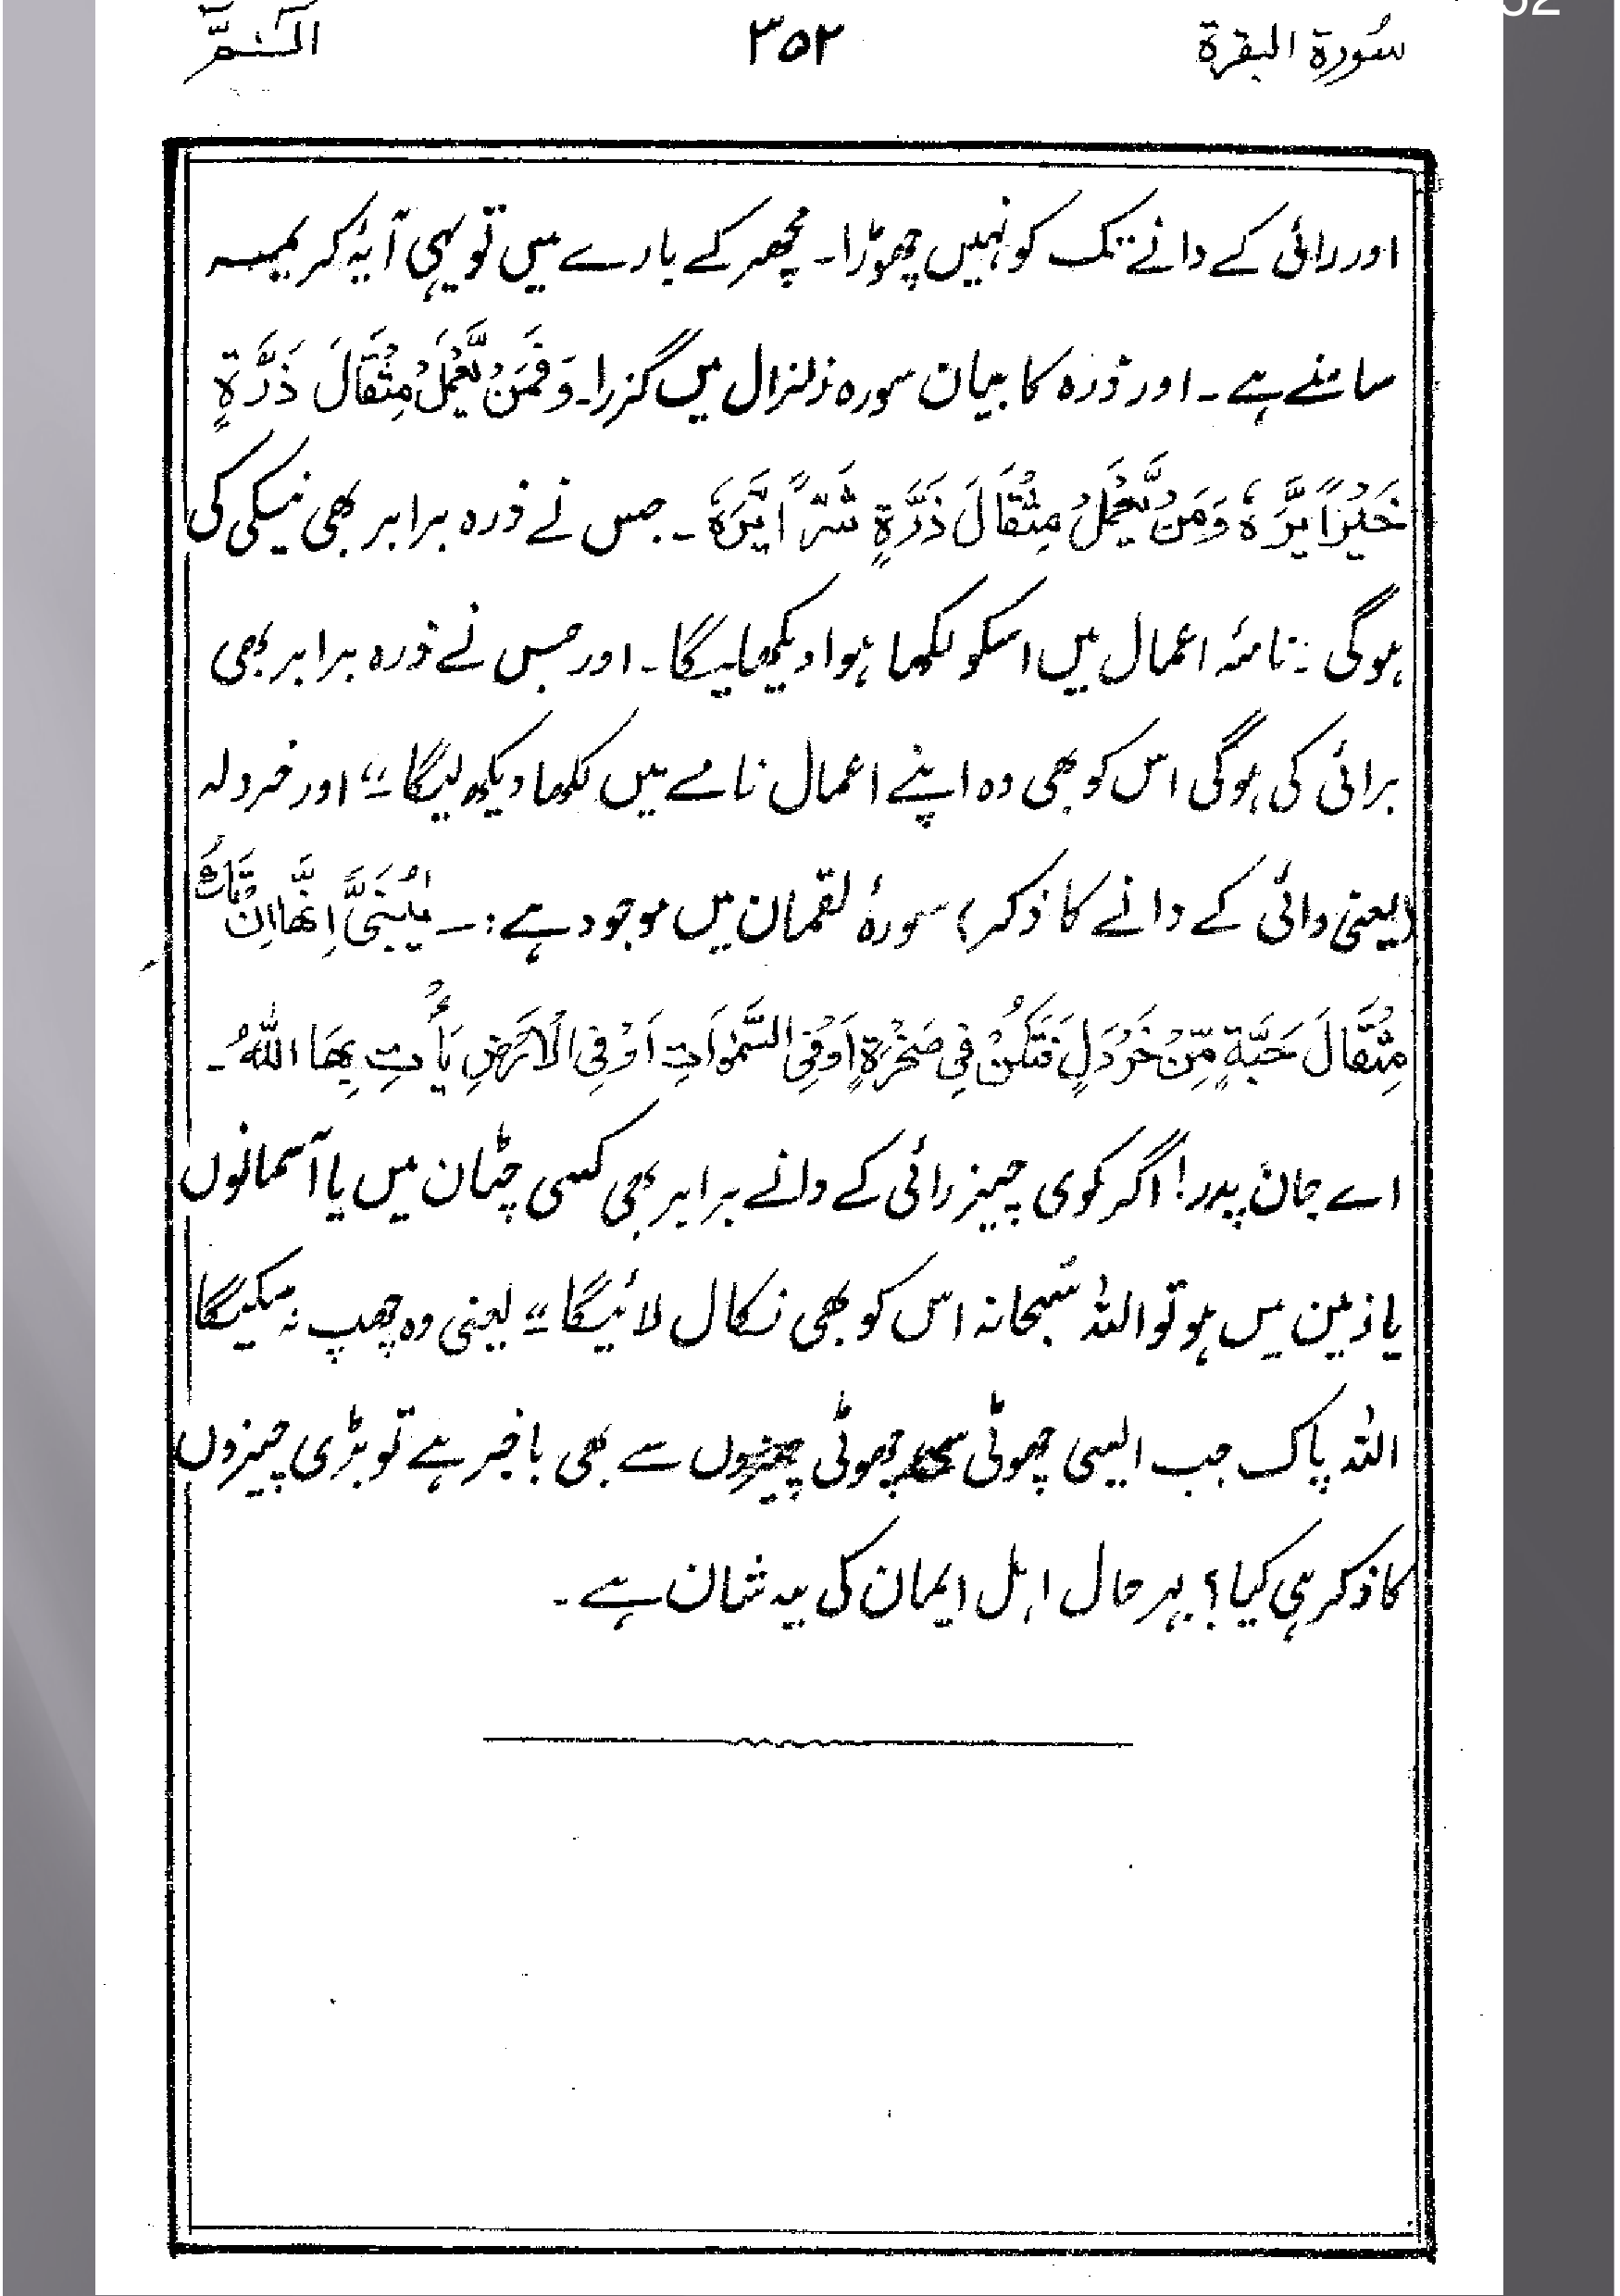 سُورة البقرة ۳۵۲ الٓـمّٓ
اور رائی کے دانے تک کو نہیں چھوڑا۔ مچھر کے بارے میں تو یہی آیۂ کریمہ
سامنے ہے۔ اور ذرہ کا بیان سورہ زلزال میں گزرا۔ وَفَمَنْ يَّعْمَلْ مِثْقَالَ ذَرَّةٍ
خَيْرًا يَّرَهٗ وَمَنْ يَّعْمَلْ مِثْقَالَ ذَرَّةٍ شَرًّا يَّرَهٗ ۔ جس نے ذرہ برابر بھی نیکی کی
ہوگی ۔ نامۂ اعمال میں اسکو لکھا ہوا دیکھ لیگا ۔ اور جس نے ذرہ برابر بھی
برائی کی ہوگی اس کو بھی وہ اپنے اعمال نامے میں لکھا دیکھ لیگا ۔“ اور خردلہ
(یعنی دائی کے دانے کا ذکر) سورۂ لقمان میں موجود ہے :۔ يٰبُنَيَّ اِنَّهَا اِنْ تَكُ
مِثْقَالَ حَبَّةٍ مِّنْ خَرْدَلٍ فَتَكُنْ فِي صَخْرَةٍ اَوْ فِي السَّمٰوَاتِ اَوْ فِي الْاَرْضِ يَأْتِ بِهَا اللّٰهُ ۔
اے جان پدر ! اگر کوی چیز رائی کے دانے برابر بھی کسی چٹان میں یا آسمانوں
یا زمین میں ہو تو اللہ سُبحانہ اس کو بھی نکال لائیگا ۔“ یعنی وہ چھپ نہ سکیگا
اللہ پاک جب ایسی چھوٹی چھوٹی چیزوں سے بھی باخبر ہے تو بڑی چیزوں
کا ذکر ہی کیا ؟ بہر حال اہل ایمان کی یہ شان ہے ۔